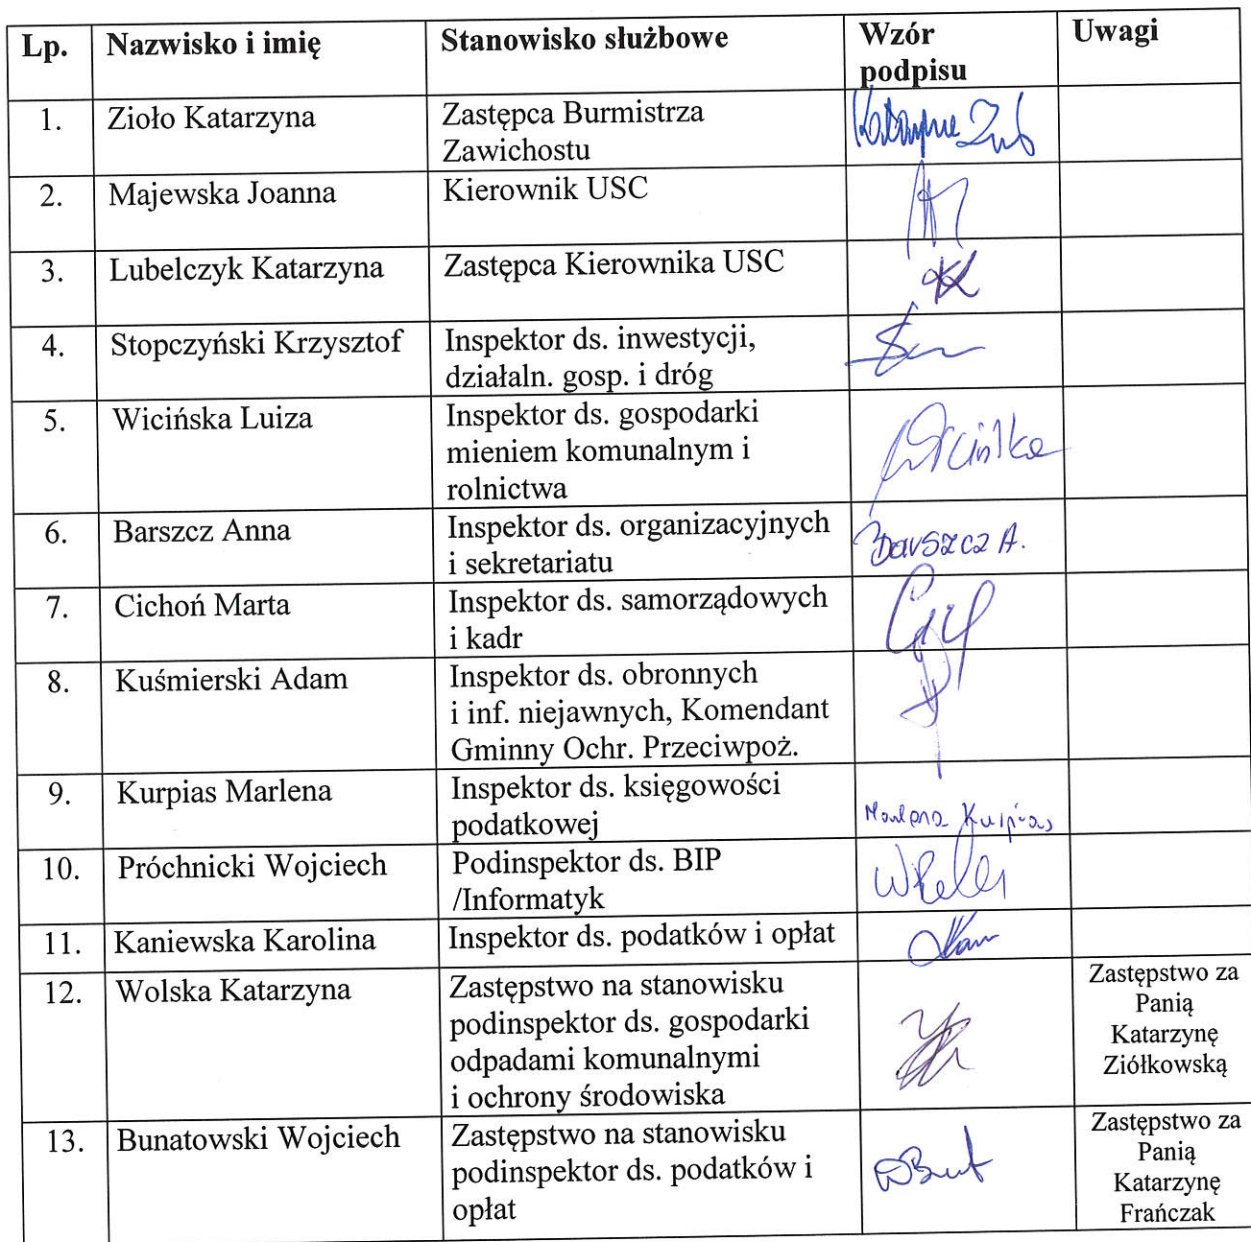 Lp. Nazwisko i imię Stanowisko służbowe Wzór Uwagi
podpisu
1. Zioło Katarzyna Zastępca Burmistrza
Zawichostu
2. Majewska Joanna Kierownik USC
3. Lubelczyk Katarzyna Zastępca Kierownika USC
4. Stopczyński Krzysztof Inspektor ds. inwestycji,
działaln. gosp. i dróg
5. Wicińska Luiza Inspektor ds. gospodarki
mieniem komunalnym i
rolnictwa
6. Barszcz Anna Inspektor ds. organizacyjnych
i sekretariatu Barszcz A.
7. Cichoń Marta Inspektor ds. samorządowych
i kadr
8. Kuśmierski Adam Inspektor ds. obronnych
i inf. niejawnych, Komendant
Gminny Ochr. Przeciwpoż.
9. Kurpias Marlena Inspektor ds. księgowości
podatkowej Marlena Kurpias
10. Próchnicki Wojciech Podinspektor ds. BIP
/Informatyk
11. Kaniewska Karolina Inspektor ds. podatków i opłat
12. Wolska Katarzyna Zastępstwo na stanowisku
podinspektor ds. gospodarki
odpadami komunalnymi
i ochrony środowiska
Zastępstwo za
Panią
Katarzynę
Ziółkowską
13. Bunatowski Wojciech Zastępstwo na stanowisku
podinspektor ds. podatków i
opłat
Zastępstwo za
Panią
Katarzynę
Frańczak